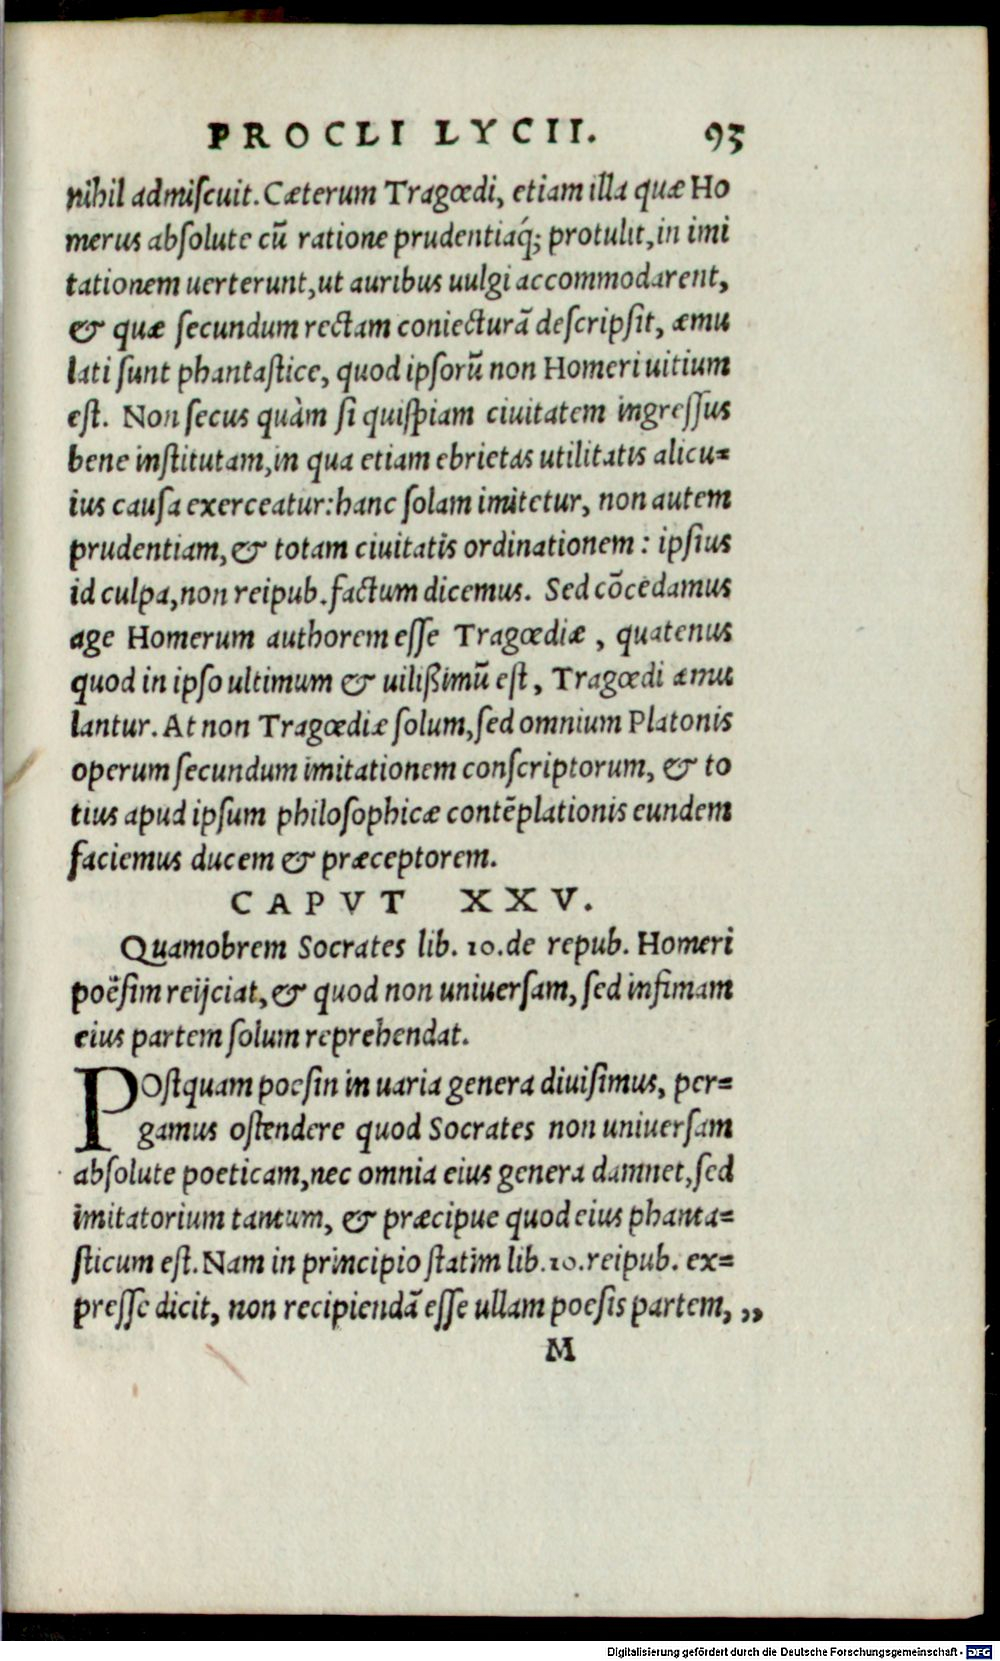 PROCLI LYCII. 93
nihil admiſcuit. Cæterum Tragœdi, etiam illa quæ Ho
merus abſolute cū ratione prudentiaq́; protulit, in imi
tationem uerterunt, ut auribus uulgi accommodarent,
& quæ ſecundum rectam coniecturā deſcripſit, æmu
lati ſunt phantaſtice, quod ipſorū non Homeri uitium
eſt. Non ſecus quàm ſi quiſpiam ciuitatem ingreſſus
bene inſtitutam, in qua etiam ebrietas utilitatis alicu=
ius cauſa exerceatur: hanc ſolam imitetur, non autem
prudentiam, & totam ciuitatis ordinationem: ipſius
id culpa, non reipub. factum dicemus. Sed cōcedamus
age Homerum authorem eſſe Tragœdiæ, quatenus
quod in ipſo ultimum & uilißimū eſt, Tragœdi æmu
lantur. At non Tragœdiæ ſolum, ſed omnium Platonis
operum ſecundum imitationem conſcriptorum, & to
tius apud ipſum philoſophicæ contēplationis eundem
faciemus ducem & præceptorem.
CAPVT XXV.
Quamobrem Socrates lib. 10. de repub. Homeri
poëſim reijciat, & quod non uniuerſam, ſed infimam
eius partem ſolum reprehendat.
POſtquam poeſin in uaria genera diuiſimus, per=
gamus oſtendere quod Socrates non uniuerſam
abſolute poeticam, nec omnia eius genera damnet, ſed
imitatorium tantum, & præcipue quod eius phanta=
ſticum eſt. Nam in principio ſtatim lib. 10. reipub. ex=
preſſe dicit, non recipiendā eſſe ullam poeſis partem, „
M
Digitalisierung gefördert durch die Deutsche Forschungsgemeinschaft - DFG